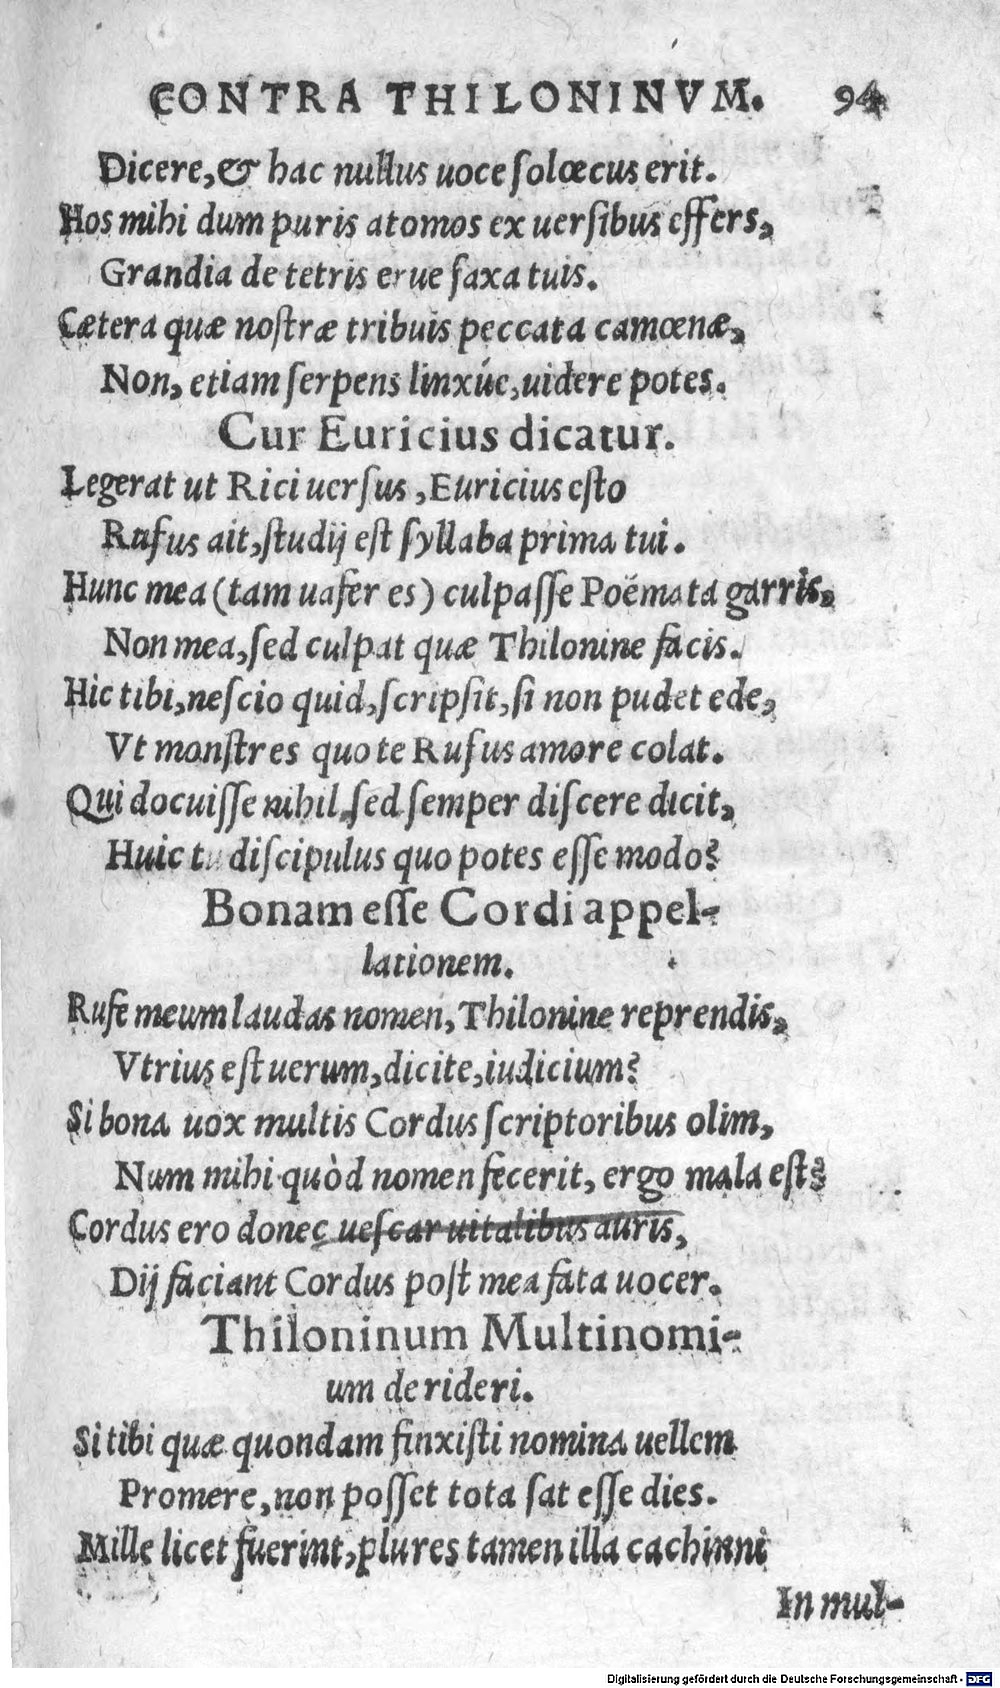 CONTRA THILONINVM. 94
Dicere,& hac nullus uoce ſolœcus erit.
Hos mihi dum puris atomos ex uerſibus effers,
Grandia de tetris erue ſaxa tuis.
Cætera quæ noſtræ tribuis peccata camœnæ,
Non, etiam ſerpens linxúe,uidere potes.
Cur Euricius dicatur.
Legerat ut Rici uerſus ,Euricius eſto
Rufus ait,ſtudij eſt ſyllaba prima tui.
Hunc mea (tam uafer es) culpaſſe Poëmata garris,
Non mea,ſed culpat quæ Thilonine facis.
Hic tibi,neſcio quid,ſcripſit,ſi non pudet ede,
Vt monſtres quo te Rufus amore colat.
Qui docuiſſe nihil,ſed ſemper diſcere dicit,
Huic tu diſcipulus quo potes eſſe modo?
Bonam eſſe Cordi appel-
lationem.
Rufe meum laudas nomen,Thilonine reprendis,
Vtrius eſt uerum,dicite,iudicium?
Si bona uox multis Cordus ſcriptoribus olim,
Num mihi quòd nomen fecerit, ergo mala eſt?
Cordus ero donec ueſcar uitalibus auris,
Dij faciant Cordus poſt mea fata uocer.
Thiloninum Multinomi-
um derideri.
Si tibi quæ quondam finxiſti nomina uellem
Promere,non poſſet tota ſat eſſe dies.
Mille licet fuerint,plures tamen illa cachinni
In mul-
Digitalisierung gefördert durch die Deutsche Forschungsgemeinschaft - DFG